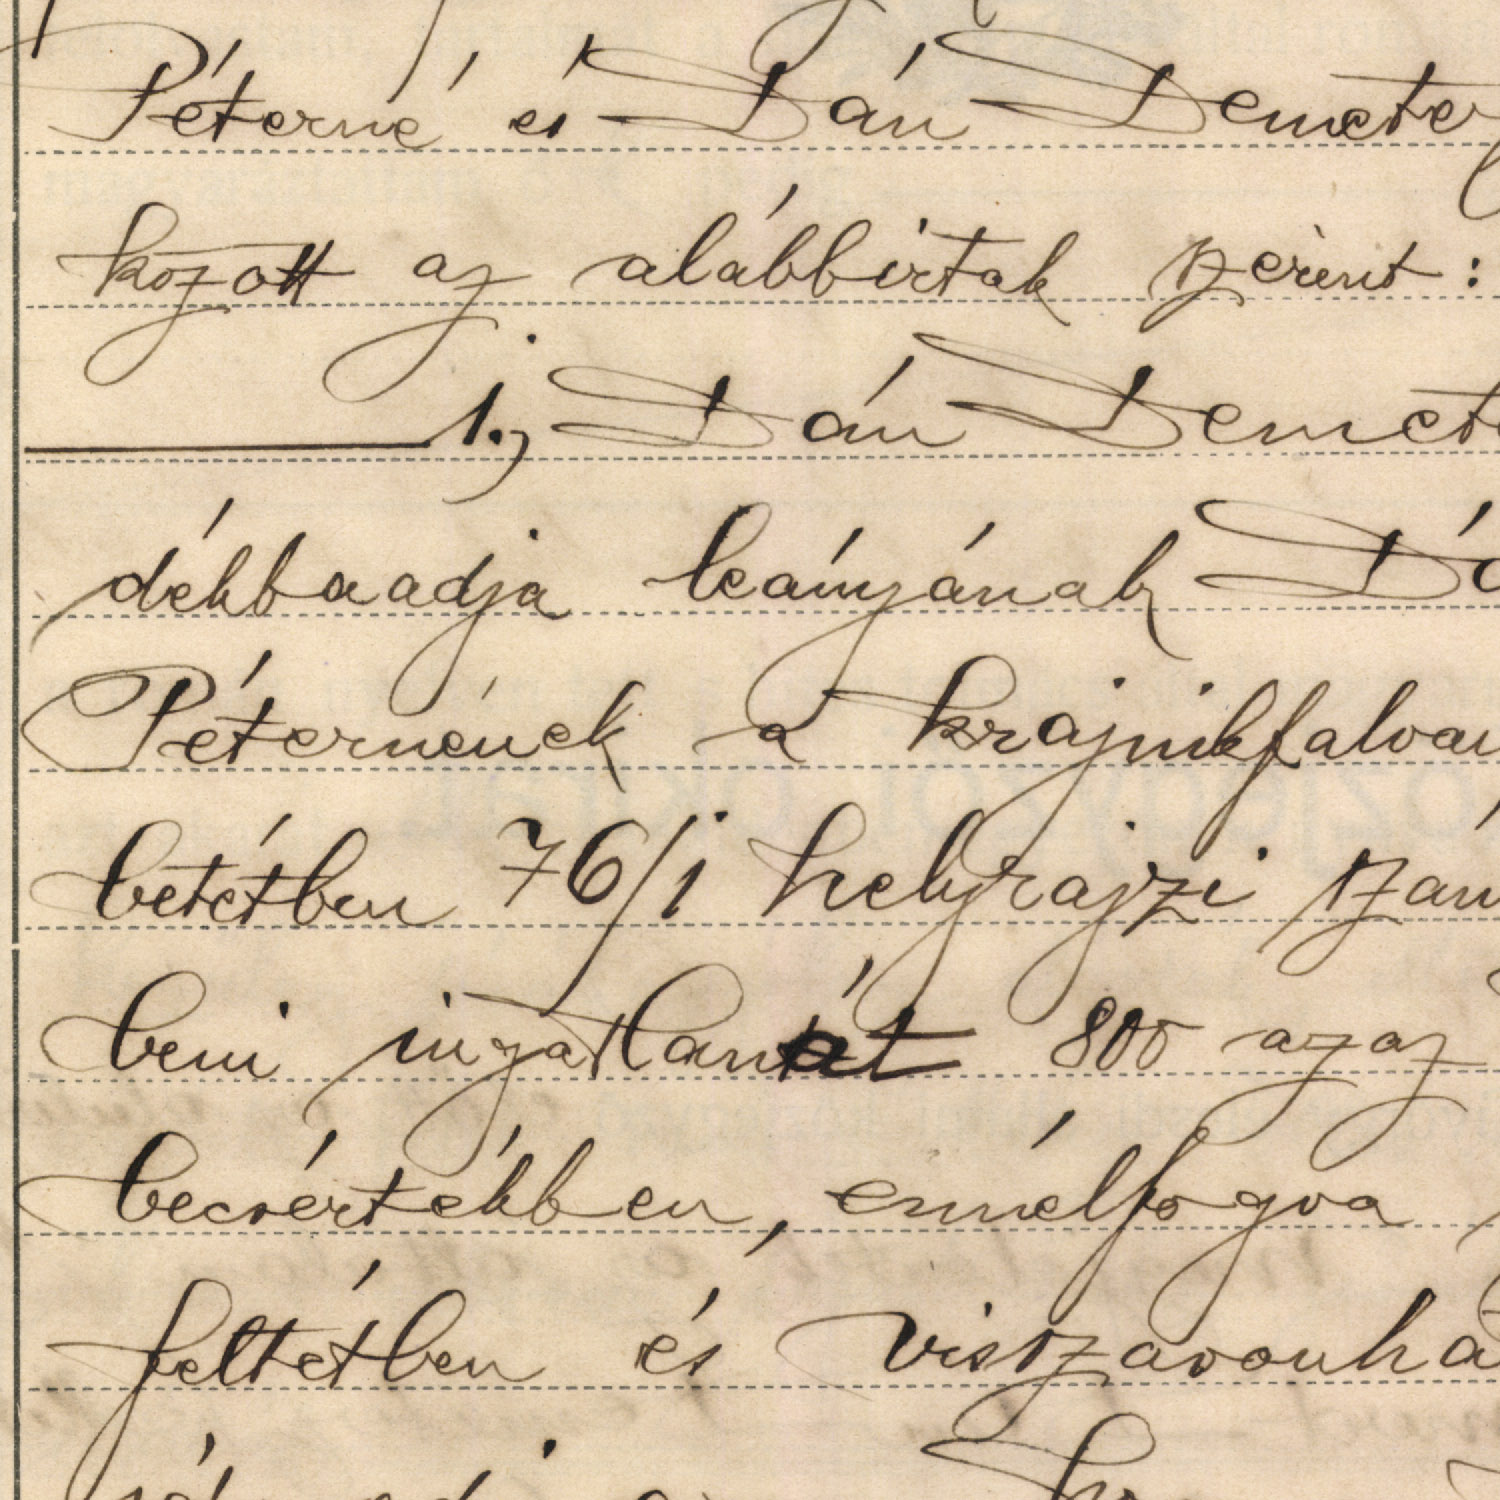 Péterné és Dán Demeter
között az alábbirtak szerint:
1.) Dán Demete
dékbaadja leányának Dá
Péternének a krajnikfalvai
betétben 76/1 helyrajzi szám
beni ingatlanát 800 azaz
becsértékben, ennélfogva
feltétben és visszavonha